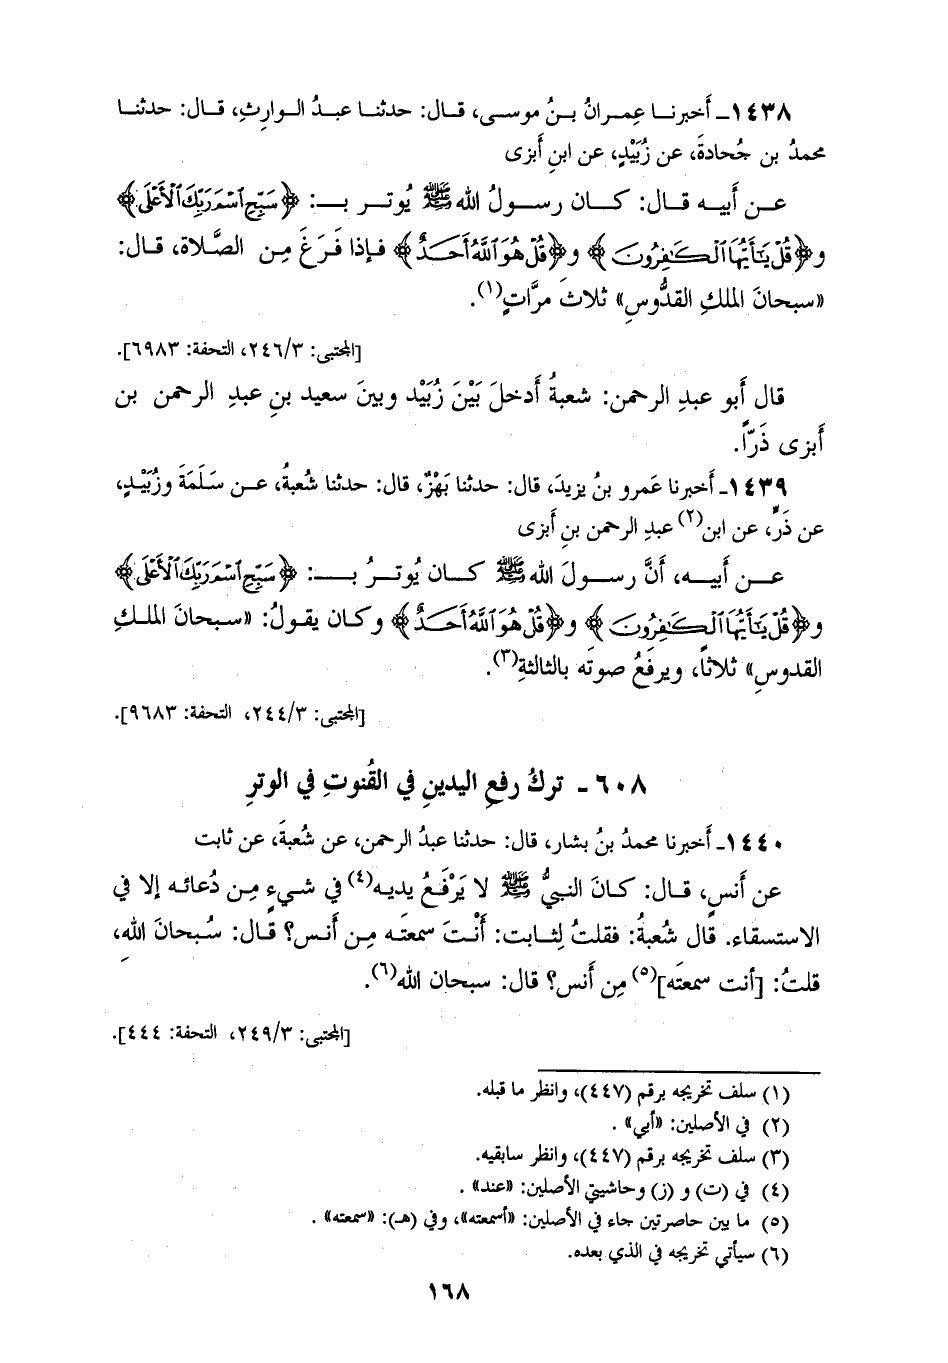 ١٤٣٨ـ أَخبرنـا عِمـرانُ بـنُ موسـى، قـال: حدثنـا عبـدُ الـوارِثِ، قـال: حدثنـا
محمدُ بن جُحادةَ، عن زُبَيْدٍ، عن ابنِ أَبزى
عـن أَبيـه قـال: كـان رسـولُ اللهﷺ يُوتـر بـ: ﴿سَبِّحِ ٱسْمَ رَبِّكَ ٱلْأَعْلَى﴾
و﴿قُلْ يَٰٓأَيُّهَا ٱلْكَٰفِرُونَ﴾ و﴿قُلْ هُوَ ٱللَّهُ أَحَدٌ﴾ فـإذا فَـرَغَ مِـن الصَّلاة، قـال:
«سبحانَ الملكِ القدُّوسِ» ثلاثَ مرَّاتٍ(١).
[المجتبى: ٢٤٦/٣، التحفة: ٦٩٨٣].
قال أَبو عبدِ الرحمن: شعبةُ أَدخلَ بَيْنَ زُبَيْد وبينَ سعيد بنِ عبدِ الرحمن بن
أَبزى ذَرّاً.
١٤٣٩ـ أَخبرنا عَمرو بنُ يزيدَ، قال: حدثنا بَهْزٌ، قال: حدثنا شُعبةُ، عـن سَلَمَةَ وزُبَيْـدٍ،
عن ذَرٍّ، عن ابن(٢) عبدِ الرحمن بنِ أَبزى
عـن أَبيـه، أَنَّ رسـولَ اللهﷺ كـان يُوتـرُ بـ: ﴿سَبِّحِ ٱسْمَ رَبِّكَ ٱلْأَعْلَى﴾
و﴿قُلْ يَٰٓأَيُّهَا ٱلْكَٰفِرُونَ﴾ و﴿قُلْ هُوَ ٱللَّهُ أَحَدٌ﴾ وكـان يقولُ: «سـبحانَ الملـكِ
القدوسِ» ثلاثاً، ويرفَعُ صوتَه بالثالثةِ(٣).
[المجتبى: ٢٤٤/٣، التحفة: ٩٦٨٣].
٦٠٨ ـ تركُ رفعِ اليدينِ في القُنوتِ في الوترِ
١٤٤٠ـ أَخبرنا محمدُ بنُ بشار، قال: حدثنا عبدُ الرحمن، عن شُعبةَ، عن ثابت
عن أَنسٍ، قال: كانَ النبيُّ ﷺ لا يَرْفَعُ يديه(٤) في شيءٍ مِـن دُعائـه إلا في
الاستسقاء. قال شُعبةُ: فقلتُ لِثـابت: أَنْـتَ سمعتَـه مِـن أَنـس؟ قـال: سُـبحانَ اللهِ،
قلتُ: [أنت سمعتَه](٥) مِن أَنس؟ قال: سبحان الله(٦).
[المجتبى: ٢٤٩/٣، التحفة: ٤٤٤].
(١) سلف تخريجه برقم (٤٤٧)، وانظر ما قبله.
(٢) في الأصلين: «أبي» .
(٣) سلف تخريجه برقم (٤٤٧)، وانظر سابقيه.
(٤) في (ت) و (ز) وحاشيتي الأصلين: «عند» .
(٥) ما بين حاصرتين جاء في الأصلين: «أسمعته»، وفي (هـ): «سمعته» .
(٦) سيأتي تخريجه في الذي بعده.
١٦٨